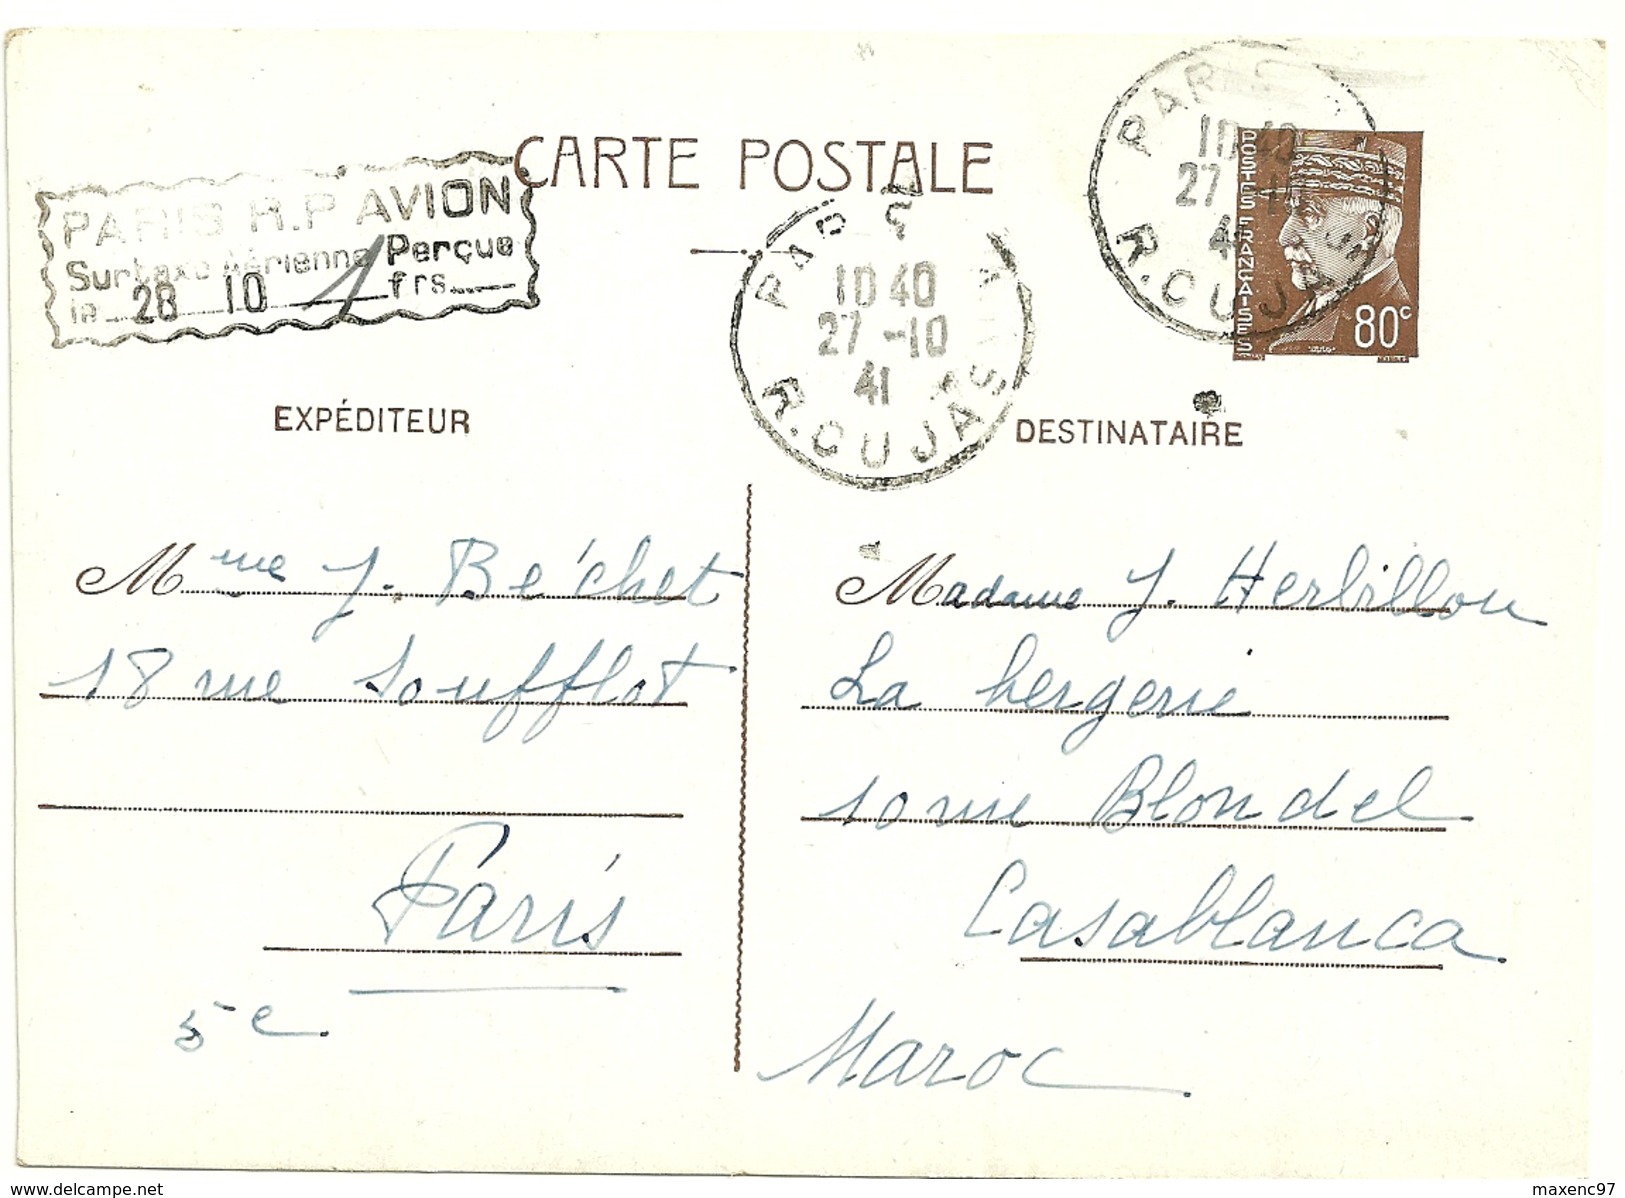 CARTE POSTALE
PARIS R.P AVION
Surtaxe Aérienne Perçue
le 28 10 1 frs
PAR
10 40
27 -10
41
R.CUJAS
PARIS
10 40
27 -10
4
R.CUJAS
POSTES FRANÇAISES
80c
EXPÉDITEUR
DESTINATAIRE
Mme J. Béchet
18 rue Soufflot
Paris
5e
Madame J. Herbillon
La bergerie
10 rue Blondel
Casablanca
Maroc
delcampe.net
maxenc97